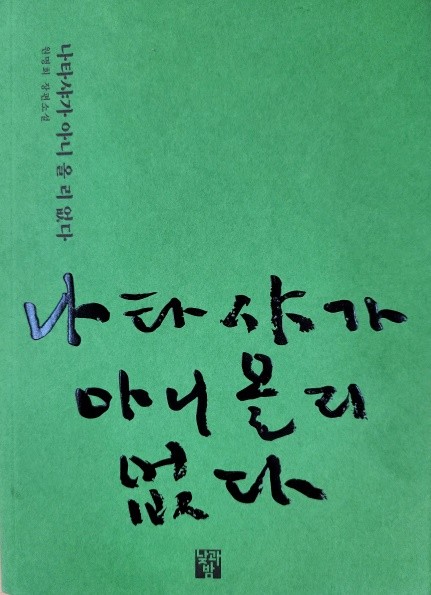 나타샤가 아니 올 리 없다
원명희 장편소설
나타샤가
아니 올 리
없다
낮과
밤